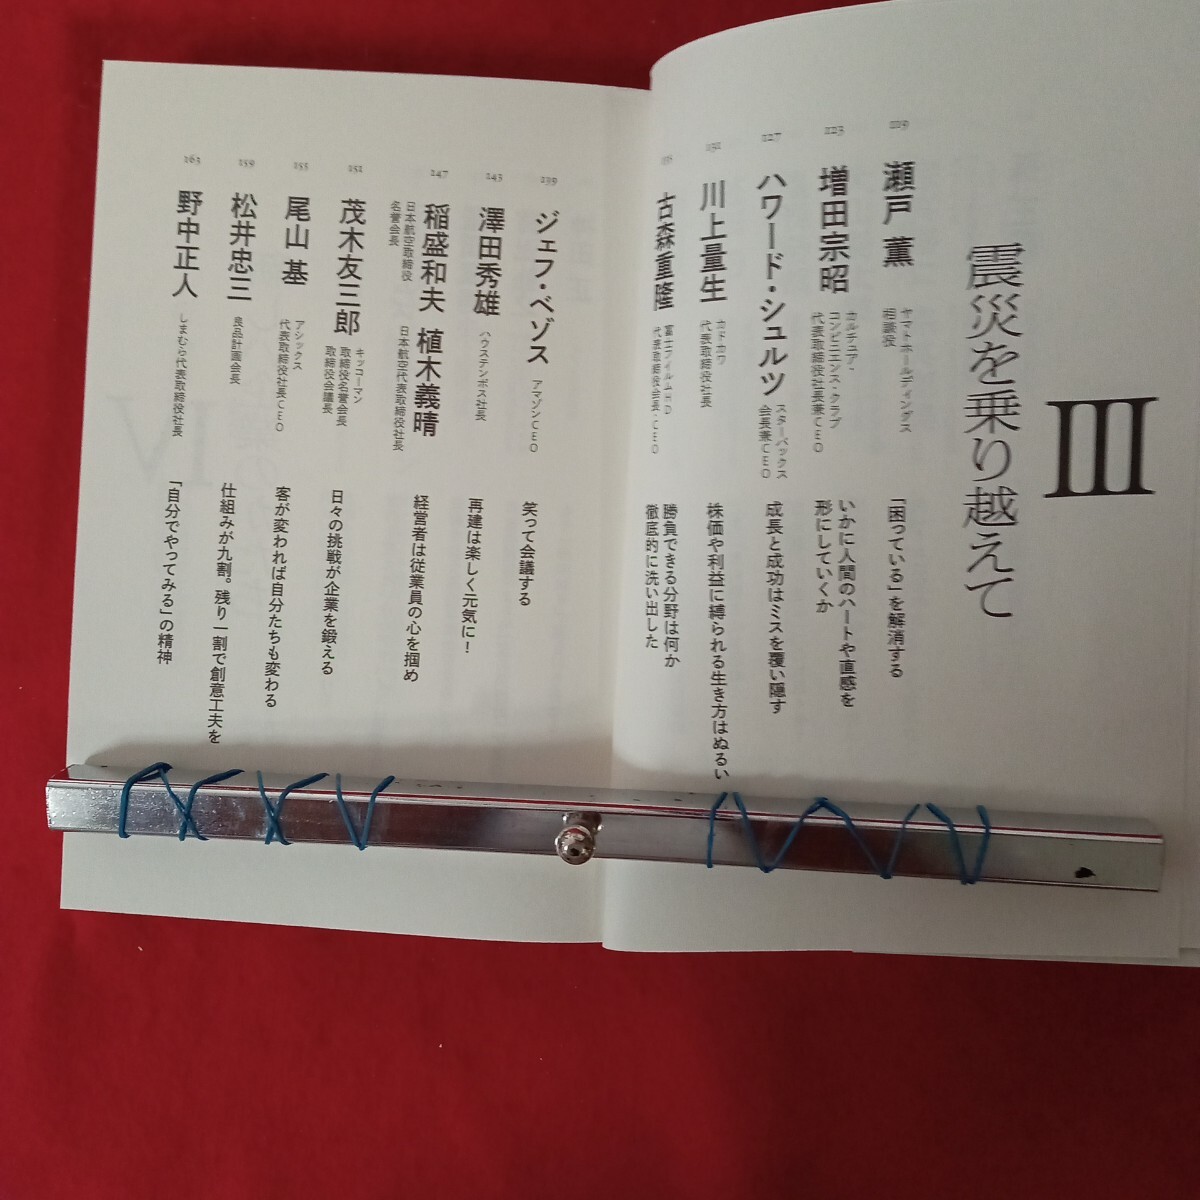 III
震災を乗り越えて
119
瀬戸 薫
ヤマトホールディングス
相談役
「困っている」を解消する
123
増田宗昭
カルチュア・
コンビニエンス・クラブ
代表取締役社長兼CEO
いかに人間のハートや直感を
形にしていくか
127
ハワード・シュルツ
スターバックス
会長兼CEO
成長と成功はミスを覆い隠す
131
川上量生
カドカワ
代表取締役社長
株価や利益に縛られる生き方はぬるい
135
古森重隆
富士フイルムHD
代表取締役会長・CEO
勝負できる分野は何か
徹底的に洗い出した
139
ジェフ・ベゾス
アマゾンCEO
笑って会議する
143
澤田秀雄
ハウステンボス社長
再建は楽しく元気に!
147
稲盛和夫
日本航空取締役
名誉会長
植木義晴
日本航空代表取締役社長
経営者は従業員の心を掴め
151
茂木友三郎
キッコーマン
取締役名誉会長
取締役会議長
日々の挑戦が企業を鍛える
155
尾山 基
アシックス
代表取締役社長CEO
客が変われば自分たちも変わる
159
松井忠三
良品計画会長
仕組みが九割。残り一割で創意工夫を
163
野中正人
しまむら代表取締役社長
「自分でやってみる」の精神